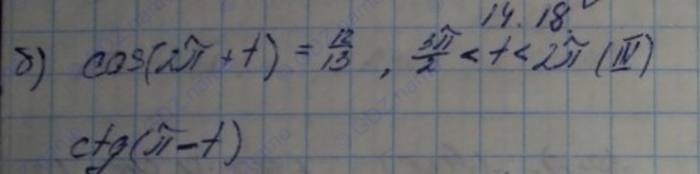 14.18.
б) cos(2π + t) = 12/13 , 3π/2 < t < 2π (IV)
ctg(π - t)